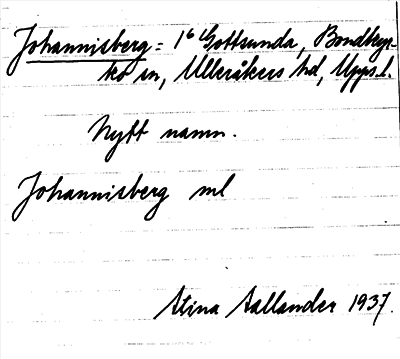 Johannisberg = 1⁶ Gottsunda, Bondkyr-
ko sn, Ulleråkers hd, Upps. l.
Nytt namn.
Johannisberg ml
Stina Aallander 1937.